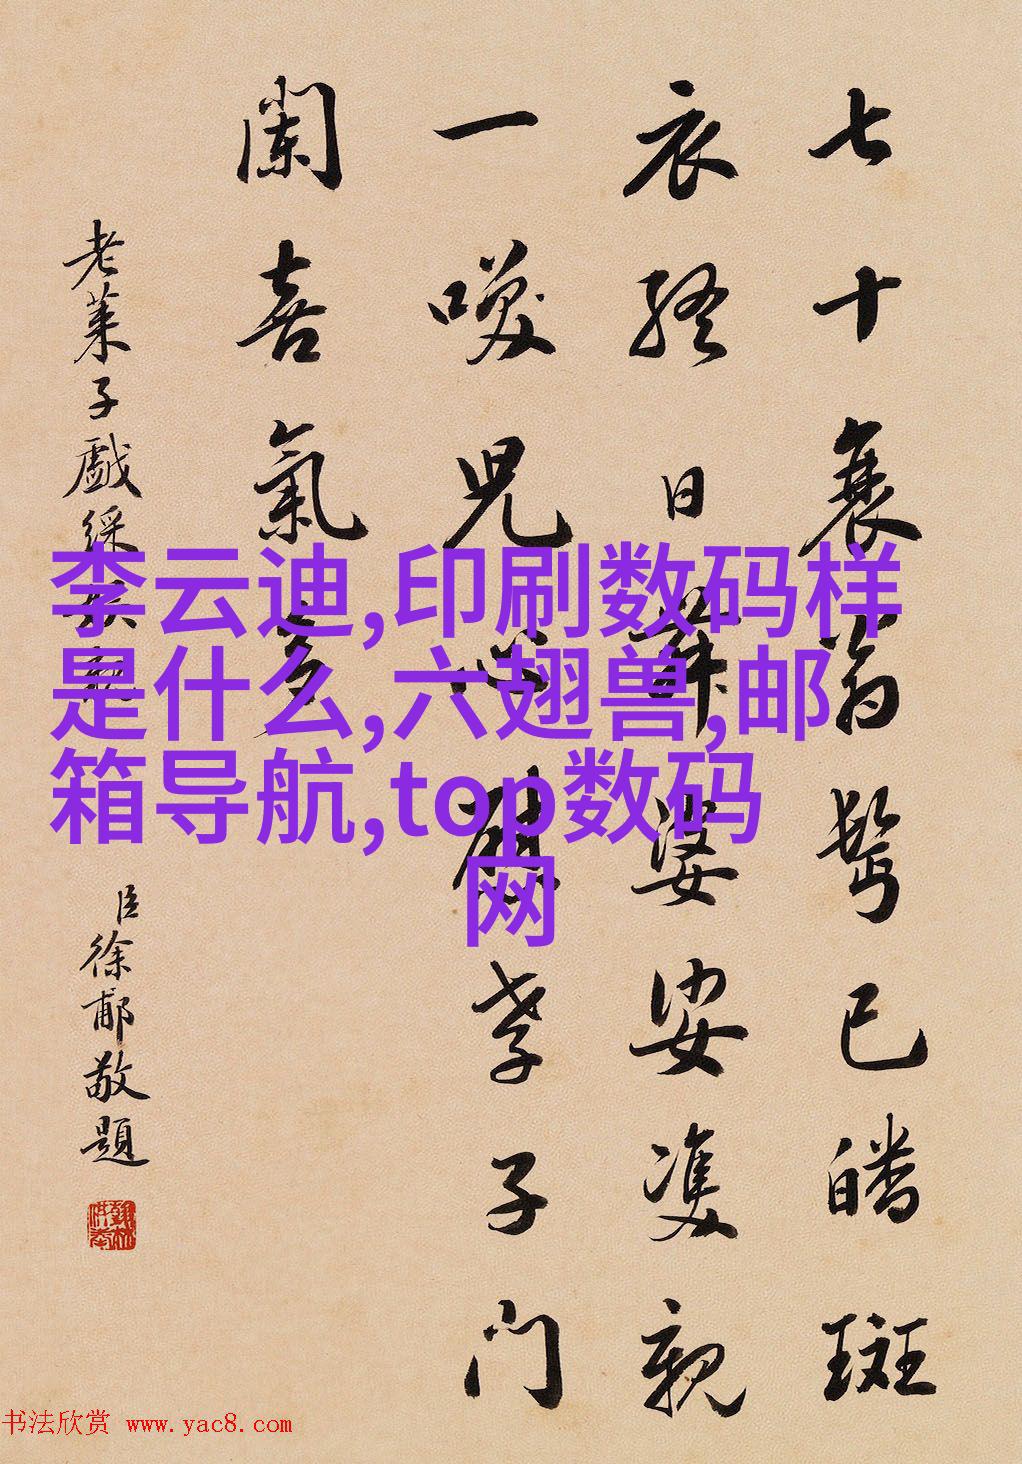 七十衰翁鬢已皤斑
衣終日舞婆娑雙親
一喚兒心孝子門
闌喜氣多
老萊子戲綵娛親
臣徐郙敬題
李云迪,印刷数码样
是什么,六翅兽,邮
箱导航,top数码
网
书法欣赏 www.yac8.com